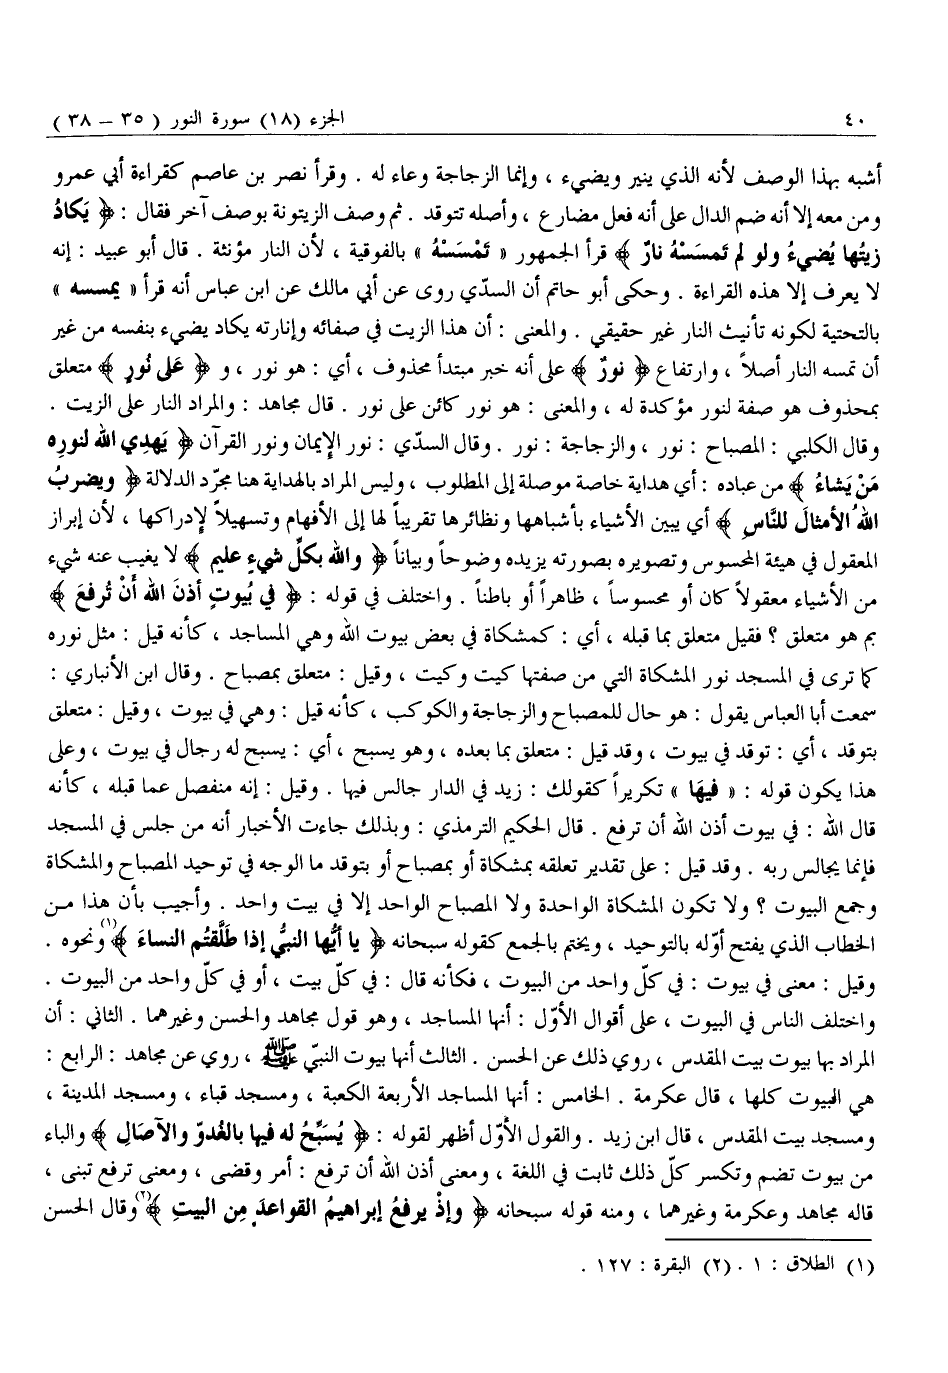 ٤٠ الجزء (١٨) سورة النور ( ٣٥ – ٣٨ )
أشبه بهذا الوصف لأنه الذي ينير ويضيء ، وإنما الزجاجة وعاء له . وقرأ نصر بن عاصم كقراءة أبي عمرو
ومن معه إلا أنه ضم الدال على أنه فعل مضارع ، وأصله تتوقد . ثم وصف الزيتونة بوصف آخر فقال : ﴿ يَكادُ
زيتُها يُضيءُ ولو لم تَمسَسْهُ نارٌ ﴾ قرأ الجمهور « تَمْسَسْهُ » بالفوقية ، لأن النار مؤنثة . قال أبو عبيد : إنه
لا يعرف إلا هذه القراءة . وحكى أبو حاتم أن السدّي روى عن أبي مالك عن ابن عباس أنه قرأ « يمسسه »
بالتحتية لكونه تأنيث النار غير حقيقي . والمعنى : أن هذا الزيت في صفائه وإنارته يكاد يضيء بنفسه من غير
أن تمسه النار أصلاً ، وارتفاع ﴿ نورٌ ﴾ على أنه خبر مبتدأ محذوف ، أي : هو نور ، و ﴿ عَلى نُورٍ ﴾ متعلق
بمحذوف هو صفة لنور مؤكدة له ، والمعنى : هو نور كائن على نور . قال مجاهد : والمراد النار على الزيت .
وقال الكلبي : المصباح : نور ، والزجاجة : نور . وقال السدّي : نور الإيمان ونور القرآن ﴿ يَهدِي الله لنورِه
مَنْ يَشاءُ ﴾ من عباده : أي هداية خاصة موصلة إلى المطلوب ، وليس المراد بالهداية هنا مجرّد الدلالة ﴿ ويضربُ
اللهُ الأمثالَ للنَّاسِ ﴾ أي يبين الأشياء بأشباهها ونظائرها تقريباً لها إلى الأفهام وتسهيلاً لإدراكها ، لأن إبراز
المعقول في هيئة المحسوس وتصويره بصورته يزيده وضوحاً وبياناً ﴿ والله بكلِّ شيءٍ عليم ﴾ لا يغيب عنه شيء
من الأشياء معقولاً كان أو محسوساً ، ظاهراً أو باطناً . واختلف في قوله : ﴿ في بُيوتٍ أذنَ الله أنْ تُرفعَ ﴾
بم هو متعلق ؟ فقيل متعلق بما قبله ، أي : كمشكاة في بعض بيوت الله وهي المساجد ، كأنه قيل : مثل نوره
كما ترى في المسجد نور المشكاة التي من صفتها كيت وكيت ، وقيل : متعلق بمصباح . وقال ابن الأنباري :
سمعت أبا العباس يقول : هو حال للمصباح والزجاجة والكوكب ، كأنه قيل : وهي في بيوت ، وقيل : متعلق
بتوقد ، أي : توقد في بيوت ، وقد قيل : متعلق بما بعده ، وهو يسبح ، أي : يسبح له رجال في بيوت ، وعلى
هذا يكون قوله : « فيهَا » تكريراً كقولك : زيد في الدار جالس فيها . وقيل : إنه منفصل عما قبله ، كأنه
قال الله : في بيوت أذن الله أن ترفع . قال الحكيم الترمذي : وبذلك جاءت الأخبار أنه من جلس في المسجد
فإنما يجالس ربه . وقد قيل : على تقدير تعلقه بمشكاة أو بمصباح أو بتوقد ما الوجه في توحيد المصباح والمشكاة
وجمع البيوت ؟ ولا تكون المشكاة الواحدة ولا المصباح الواحد إلا في بيت واحد . وأجيب بأن هذا مـن
الخطاب الذي يفتح أوّله بالتوحيد ، ويختم بالجمع كقوله سبحانه ﴿ يا أيُّها النبيُّ إذا طَلَّقتُم النساءَ ﴾(١) ونحوه .
وقيل : معنى في بيوت : في كلّ واحد من البيوت ، فكأنه قال : في كلّ بيت ، أو في كلّ واحد من البيوت .
واختلف الناس في البيوت ، على أقوال الأوّل : أنها المساجد ، وهو قول مجاهد والحسن وغيرهما . الثاني : أن
المراد بها بيوت بيت المقدس ، روي ذلك عن الحسن . الثالث أنها بيوت النبيّ ﷺ ، روي عن مجاهد : الرابع :
هي البيوت كلها ، قال عكرمة . الخامس : أنها المساجد الأربعة الكعبة ، ومسجد قباء ، ومسجد المدينة ،
ومسجد بيت المقدس ، قال ابن زيد . والقول الأوّل أظهر لقوله : ﴿ يُسَبِّحُ له فيها بالغُدوّ والآصَالِ ﴾ والباء
من بيوت تضم وتكسر كلّ ذلك ثابت في اللغة ، ومعنى أذن الله أن ترفع : أمر وقضى ، ومعنى ترفع تبنى ،
قاله مجاهد وعكرمة وغيرهما ، ومنه قوله سبحانه ﴿ وإذْ يرفعُ إبراهيمُ القواعدَ مِن البيتِ ﴾(٢) وقال الحسن
(١) الطلاق : ١ . (٢) البقرة : ١٢٧ .